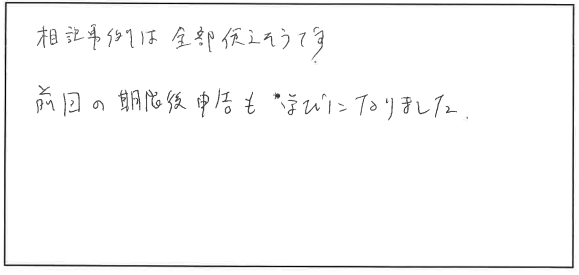 相談事例は全部使えそうです
前回の期限後申告も学びになりました.